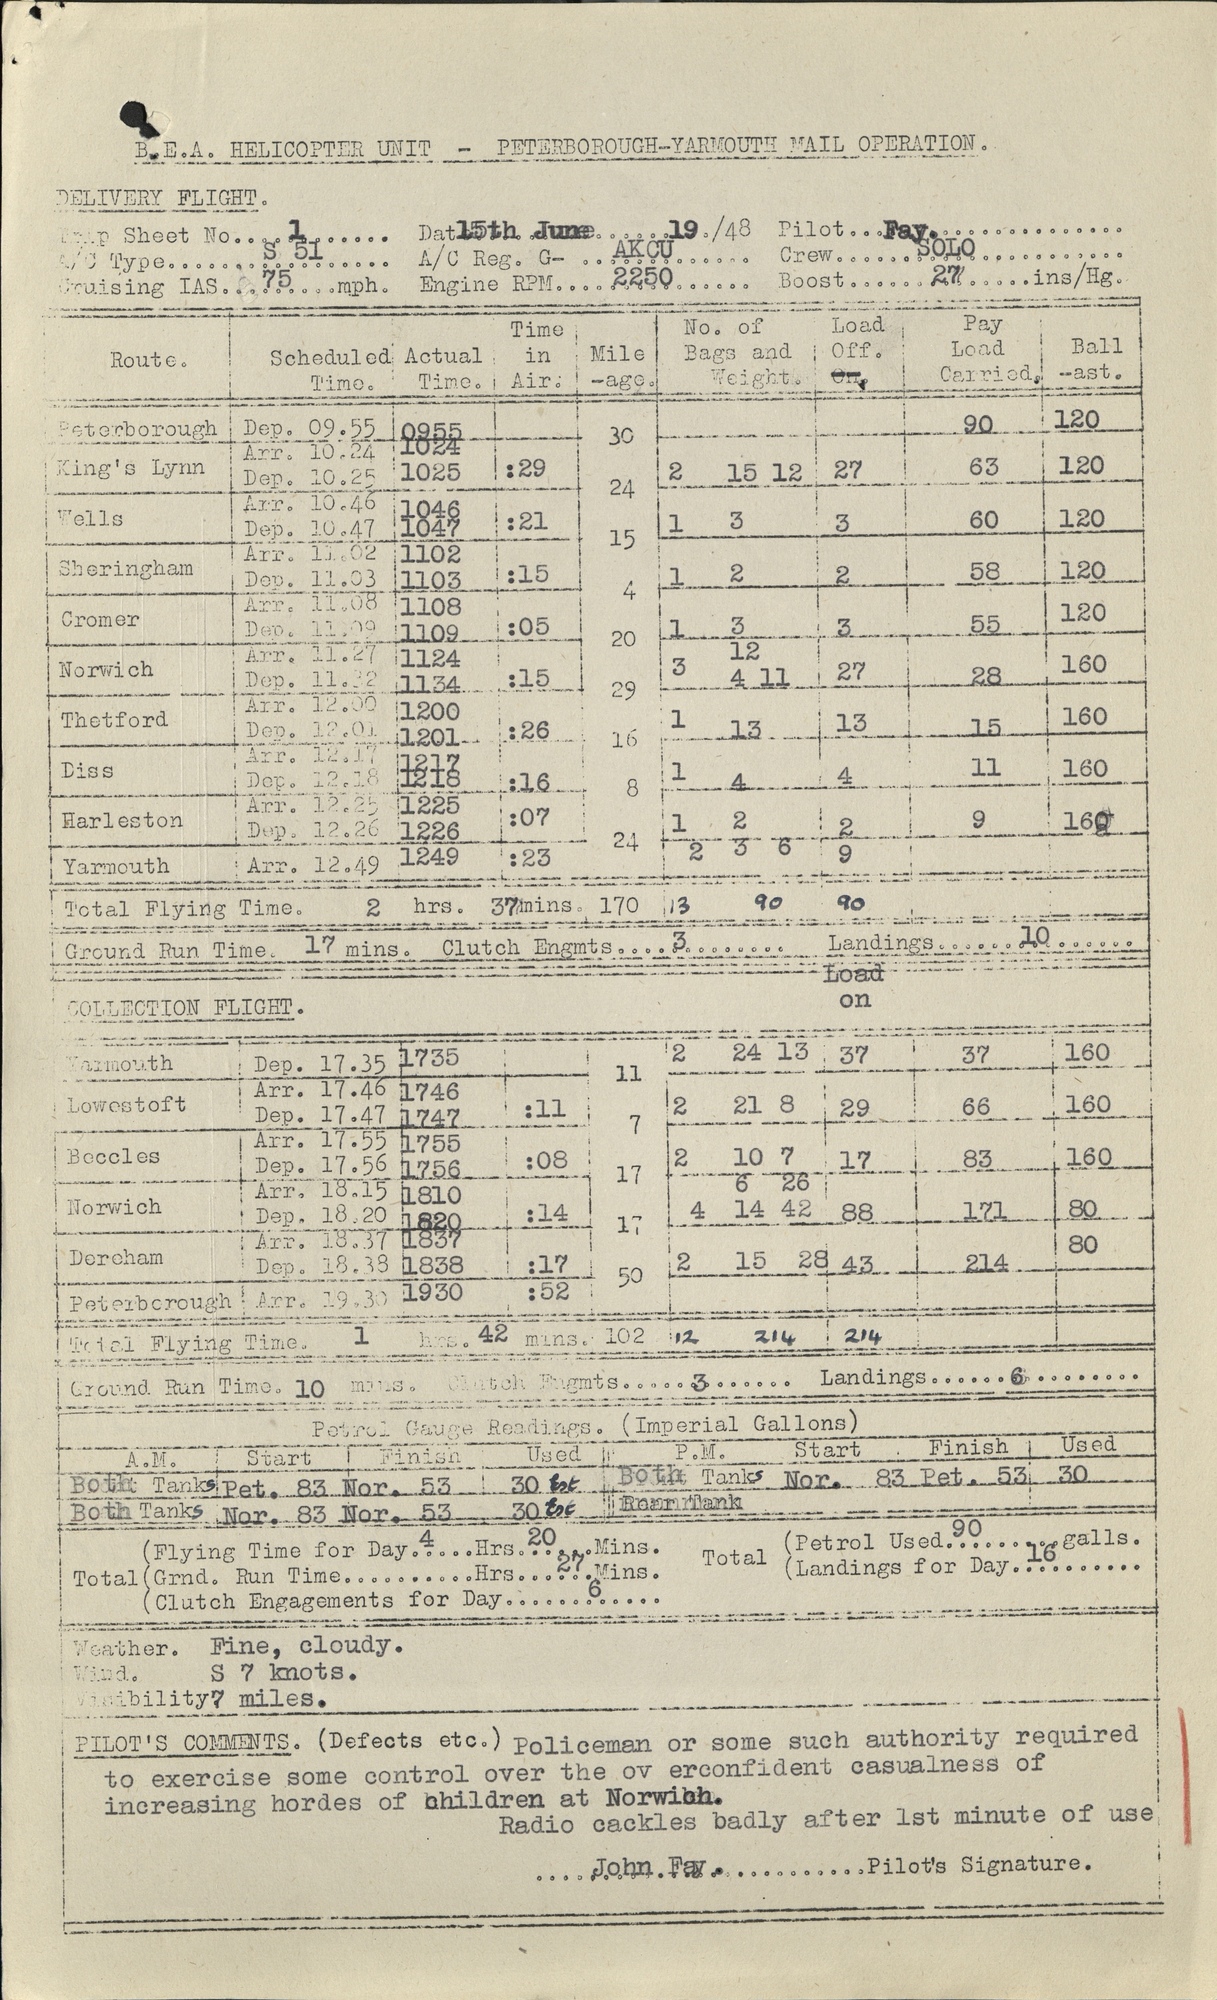 B.E.A. HELICOPTER UNIT - PETERBOROUGH-YARMOUTH MAIL OPERATION.
DELIVERY FLIGHT.
Trip Sheet No....1....... Dat15th June......19./48 Pilot...Fay.................
A/C Type.......S 51......... A/C Reg. G- ...AKCU....... Crew......SOLO...............
Cruising IAS...75.....mph. Engine RPM....2250....... Boost......27.....ins/Hg.
Route. Scheduled Time. Actual Time. Time in Air. Mile-age. No. of Bags and Weight. Load Off. On. Pay Load Carried. Ball-ast.
Peterborough Dep. 09.55 0955 90 120
30
King's Lynn Arr. 10.24 1024
Dep. 10.25 1025 :29 2 15 12 27 63 120
24
Wells Arr. 10.46 1046
Dep. 10.47 1047 :21 1 3 3 60 120
15
Sheringham Arr. 11.02 1102
Dep. 11.03 1103 :15 1 2 2 58 120
4
Cromer Arr. 11.08 1108
Dep. 11.09 1109 :05 1 3 3 55 120
20
Norwich Arr. 11.27 1124 12
Dep. 11.32 1134 :15 3 4 11 27 28 160
29
Thetford Arr. 12.00 1200
Dep. 12.01 1201 :26 1 13 13 15 160
16
Diss Arr. 12.17 1217
Dep. 12.18 1218 :16 1 4 4 11 160
8
Harleston Arr. 12.25 1225
Dep. 12.26 1226 :07 1 2 2 9 160
24
Yarmouth Arr. 12.49 1249 :23 2 3 6 9
Total Flying Time. 2 hrs. 37 mins. 170 13 90 90
Ground Run Time. 17 mins. Clutch Engmts....3........ Landings.......10......
Load
on
COLLECTION FLIGHT.
Yarmouth Dep. 17.35 1735 2 24 13 37 37 160
11
Lowestoft Arr. 17.46 1746
Dep. 17.47 1747 :11 2 21 8 29 66 160
7
Beccles Arr. 17.55 1755
Dep. 17.56 1756 :08 2 10 7 17 83 160
17
Norwich Arr. 18.15 1810 6 26
Dep. 18.20 1820 :14 4 14 42 88 171 80
17
Dereham Arr. 18.37 1837
Dep. 18.38 1838 :17 2 15 28 43 214 80
50
Peterborough Arr. 19.30 1930 :52
Total Flying Time. 1 hrs. 42 mins. 102 12 214 214
Ground Run Time. 10 mins. Clutch Engmts......3....... Landings......6.........
Petrol Gauge Readings. (Imperial Gallons)
A.M. Start Finish Used P.M. Start Finish Used
Both Tanks Pet. 83 Nor. 53 30 Est Both Tanks Nor. 83 Pet. 53 30
Both Tanks Nor. 83 Nor. 53 30 Est Rear Tank
(Flying Time for Day.4....Hrs.20...Mins. Total (Petrol Used.90.......galls.
Total (Grnd. Run Time..........Hrs...27..Mins. (Landings for Day.16.........
(Clutch Engagements for Day.......6.....
Weather. Fine, cloudy.
Wind. S 7 knots.
Visibility 7 miles.
PILOT'S COMMENTS. (Defects etc.) Policeman or some such authority required
to exercise some control over the ov erconfident casualness of
increasing hordes of children at Norwich.
Radio cackles badly after 1st minute of use
.....John Fay............Pilot's Signature.